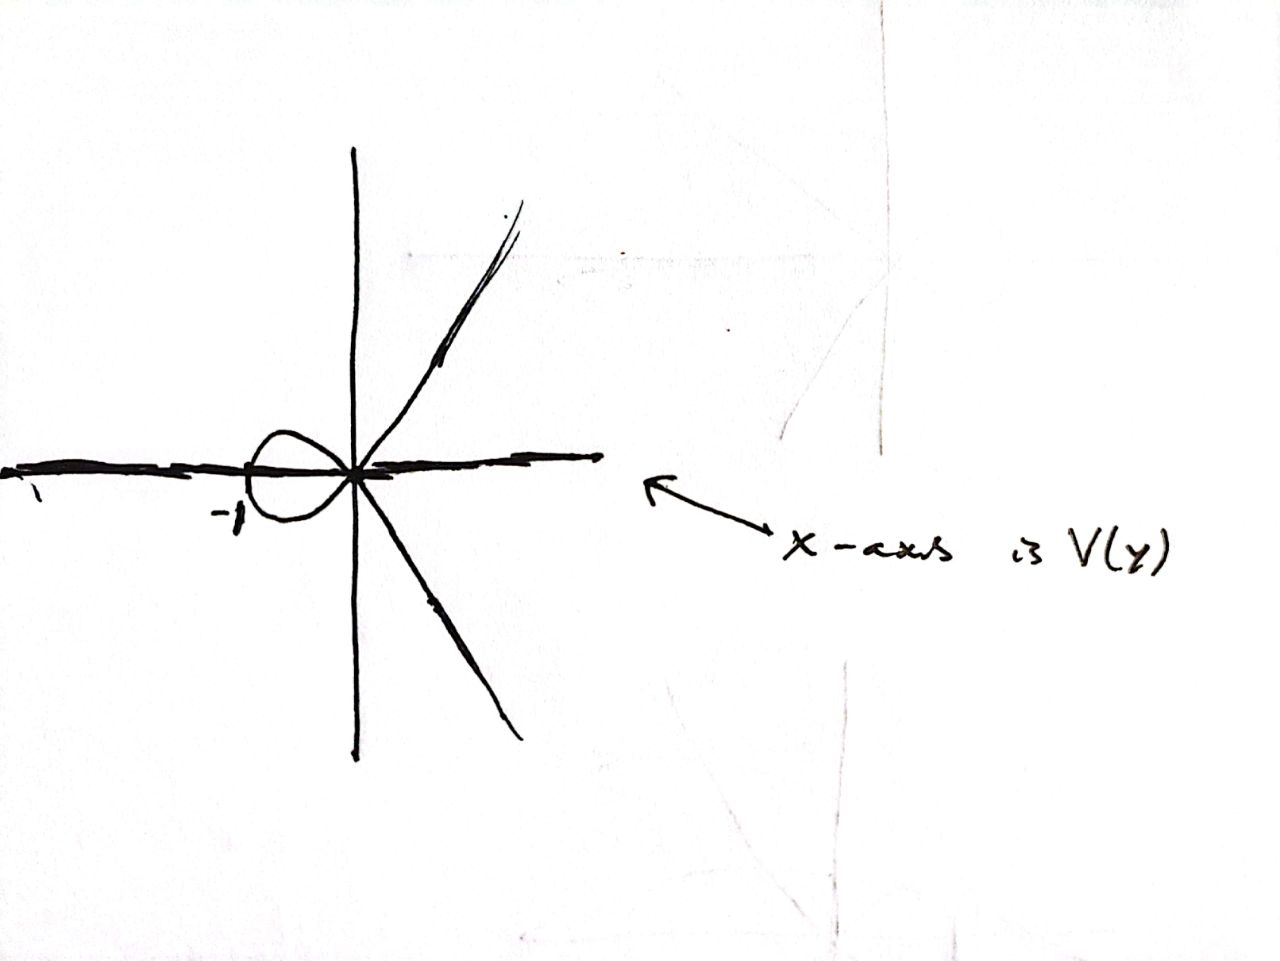 -1
x-axis is V(y)